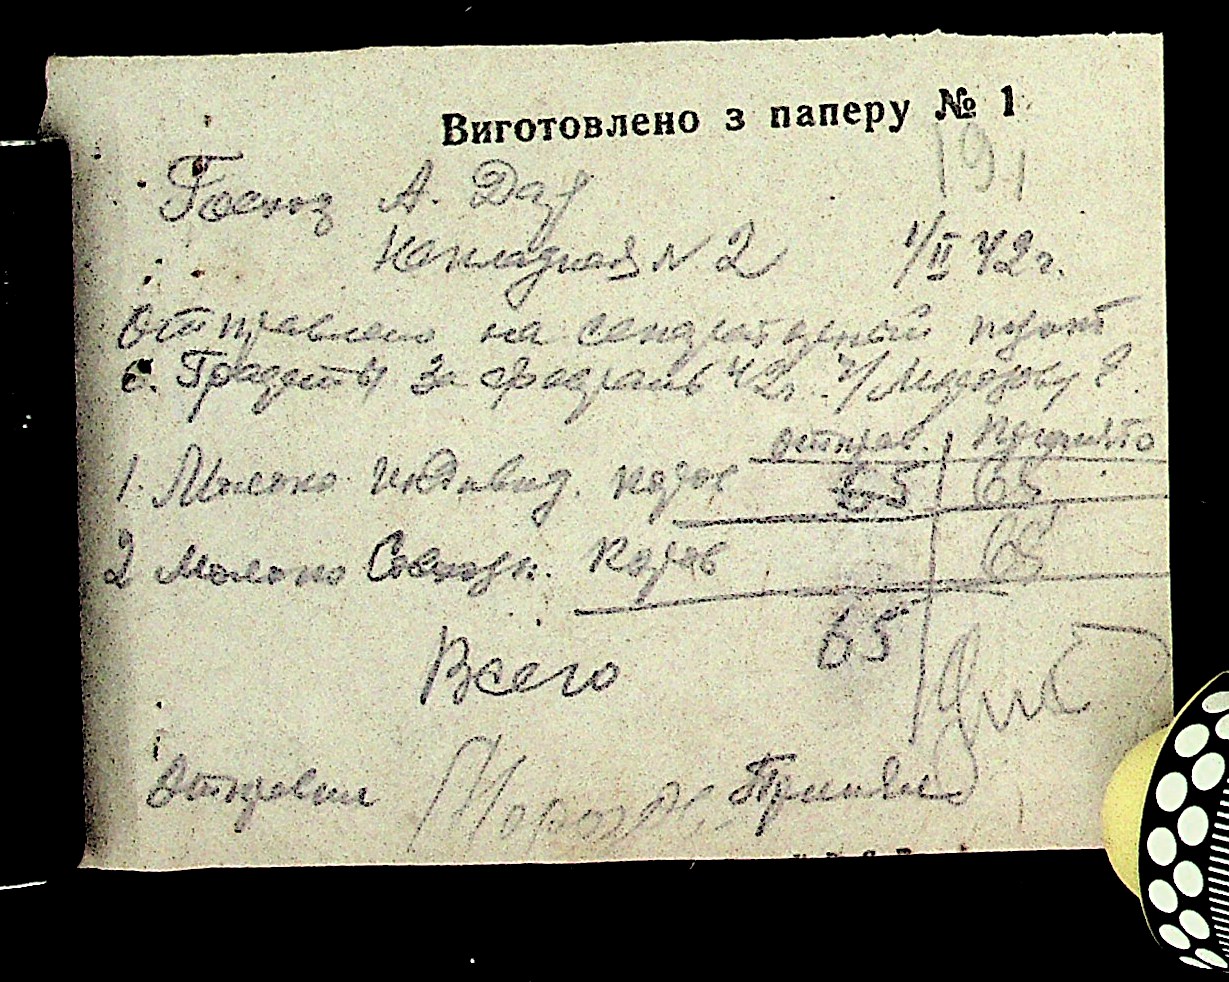 Виготовлено з паперу № 1
191
Госхоз А. Дар
Накладная № 2 1/II 42 г.
Отправлено на сепаратцый пункт
с. Граденты за февраль 42 г.
отправ. Принято
1. Молоко индивид. коров 65 65
2 Молоко Совхозн. коров 65
Всего 65
Отправил Принял